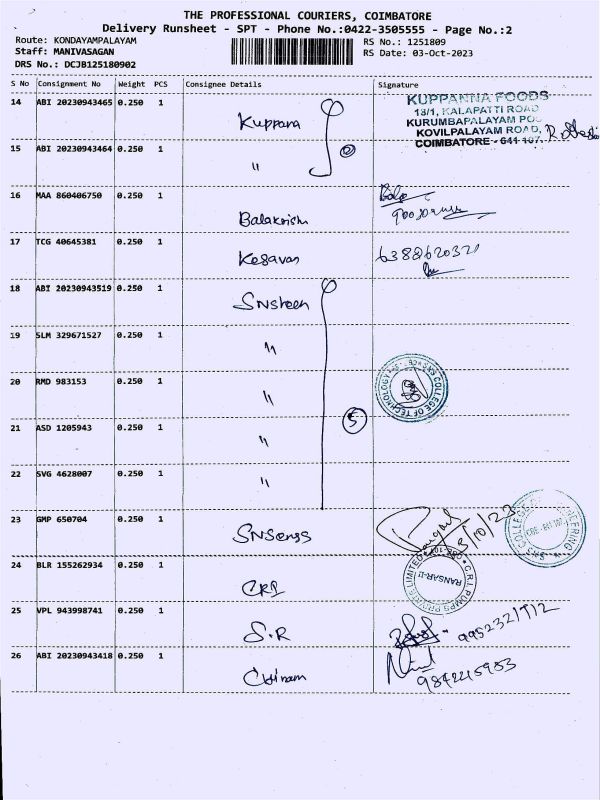 THE PROFESSIONAL COURIERS, COIMBATORE
Delivery Runsheet - SPT - Phone No.:0422-3505555 - Page No.:2
Route: KONDAYAMPALAYAM
RS No.: 1251809
Staff: MANIVASAGAN
RS Date: 03-Oct-2023
DRS No.: DCJB125180902
S No Consignment No Weight PCS Consignee Details Signature
14 ABI 20230943465 0.250 1 Kuppana
KUPPANNA FOODS
13/1, KALAPATTI ROAD
KURUMBAPALAYAM PO
KOVILPALAYAM ROAD,
COIMBATORE - 641 107.
15 ABI 20230943464 0.250 1 "
2
16 MAA 860406750 0.250 1 Balakrish
17 TCG 40645381 0.250 1 Kesavan 6388620321
18 ABI 20230943519 0.250 1 SNStech
19 SLM 329671527 0.250 1 "
20 RMD 983153 0.250 1 "
SNS COLLEGE OF TECHNOLOGY
21 ASD 1205943 0.250 1 "
5
22 SVG 4628007 0.250 1 "
23 GMP 650704 0.250 1 SNSengg
3/10/23
SNS COLLEGE OF ENGINEERING
24 BLR 155262934 0.250 1 CRI
C.R.I. PUMPS PRIVATE LIMITED
25 VPL 943998741 0.250 1 S.R
26 ABI 20230943418 0.250 1
9842245953